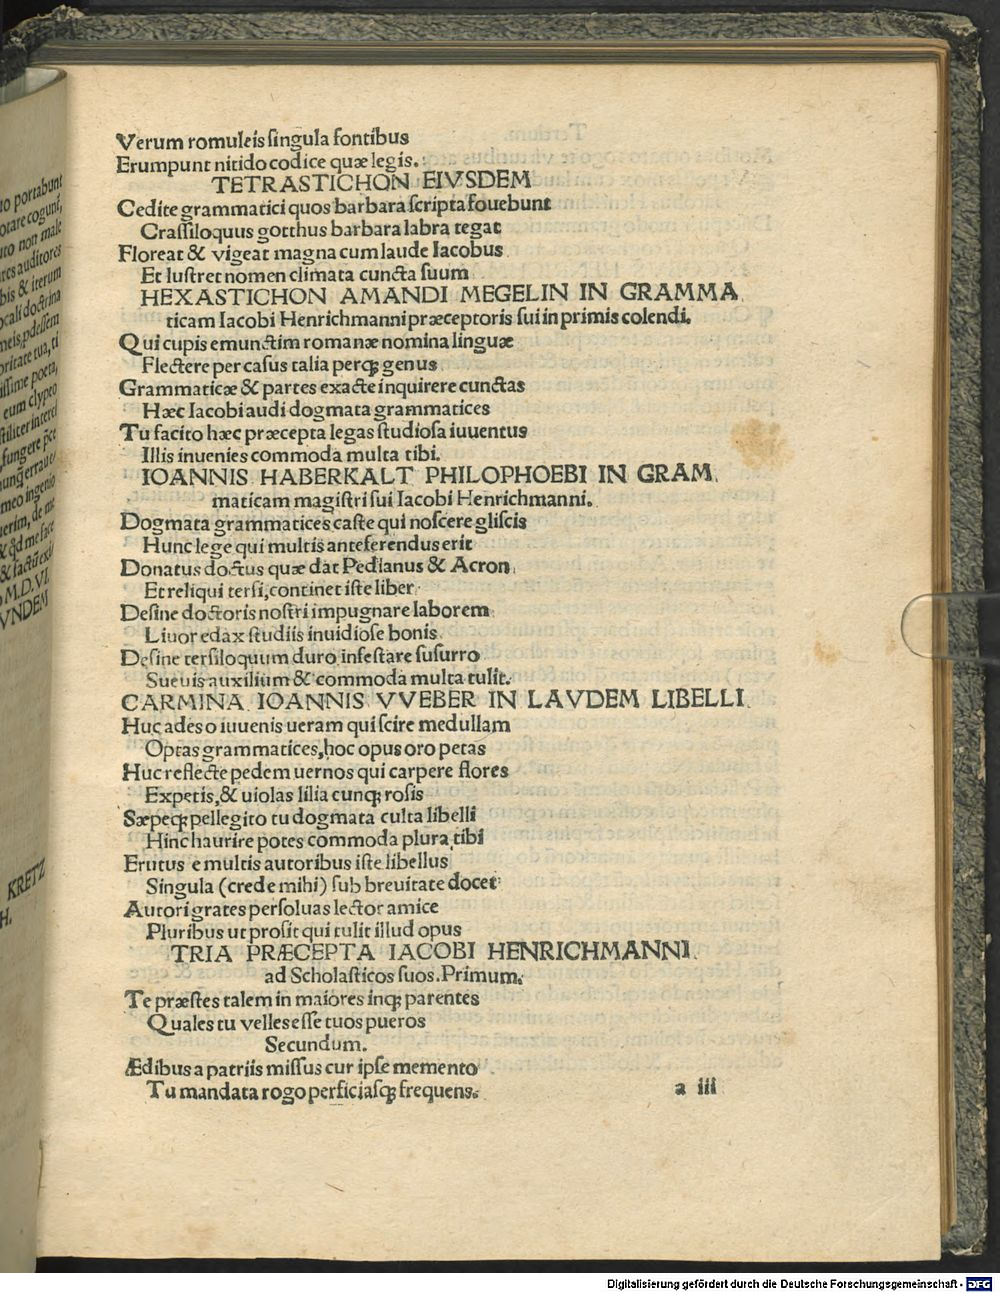 Verum romuleis singula fontibus
Erumpunt nitido codice quæ legis.
TETRASTICHON EIVSDEM
Cedite grammatici quos barbara scripta fouebunt
Crassiloquus gotthus barbara labra tegat
Floreat & vigeat magna cum laude Iacobus
Et lustret nomen climata cuncta suum
HEXASTICHON AMANDI MEGELIN IN GRAMMA
ticam Iacobi Henrichmanni præceptoris sui in primis colendi.
Qui cupis emunctim romanæ nomina linguæ
Flectere per casus talia perq; genus
Grammaticæ & partes exacte inquirere cunctas
Hæc Iacobi audi dogmata grammatices
Tu facito hæc præcepta legas studiosa iuuentus
Illis inuenies commoda multa tibi.
IOANNIS HABERKALT PHILOPHOEBI IN GRAM
maticam magistri sui Iacobi Henrichmanni.
Dogmata grammatices caste qui noscere gliscis
Hunc lege qui multis anteferendus erit
Donatus doctus quæ dat Pedianus & Acron
Et reliqui tersi, continet iste liber
Desine doctoris nostri impugnare laborem
Liuor edax studiis inuidiose bonis
Desine tersiloquum duro infestare susurro
Sueuis auxilium & commoda multa tulit.
CARMINA IOANNIS VVEBER IN LAVDEM LIBELLI
Huc ades o iuuenis ueram qui scire medullam
Optas grammatices, hoc opus oro petas
Huc reflecte pedem uernos qui carpere flores
Expetis, & uiolas lilia cunq; rosis
Sæpeq; pellegito tu dogmata culta libelli
Hinc haurire potes commoda plura tibi
Erutus e multis autoribus iste libellus
Singula (crede mihi) sub breuitate docet
Autori grates persoluas lector amice
Pluribus ut prosit qui tulit illud opus
TRIA PRÆCEPTA IACOBI HENRICHMANNI
ad Scholasticos suos. Primum.
Te præstes talem in maiores inq; parentes
Quales tu velles esse tuos pueros
Secundum.
Ædibus a patriis missus cur ipse memento
Tu mandata rogo perficiasq; frequens.
a iii
uo portabunt
uto non male
res auditores
bis & iterum
ocali doctrina
ritate tua, ti
issime poeta,
eum clypeo
stiliter interci
meo ingenio
erim, de me
M.D.VI.
VNDEM
KRETZ
H.
Digitalisierung gefördert durch die Deutsche Forschungsgemeinschaft - DFG